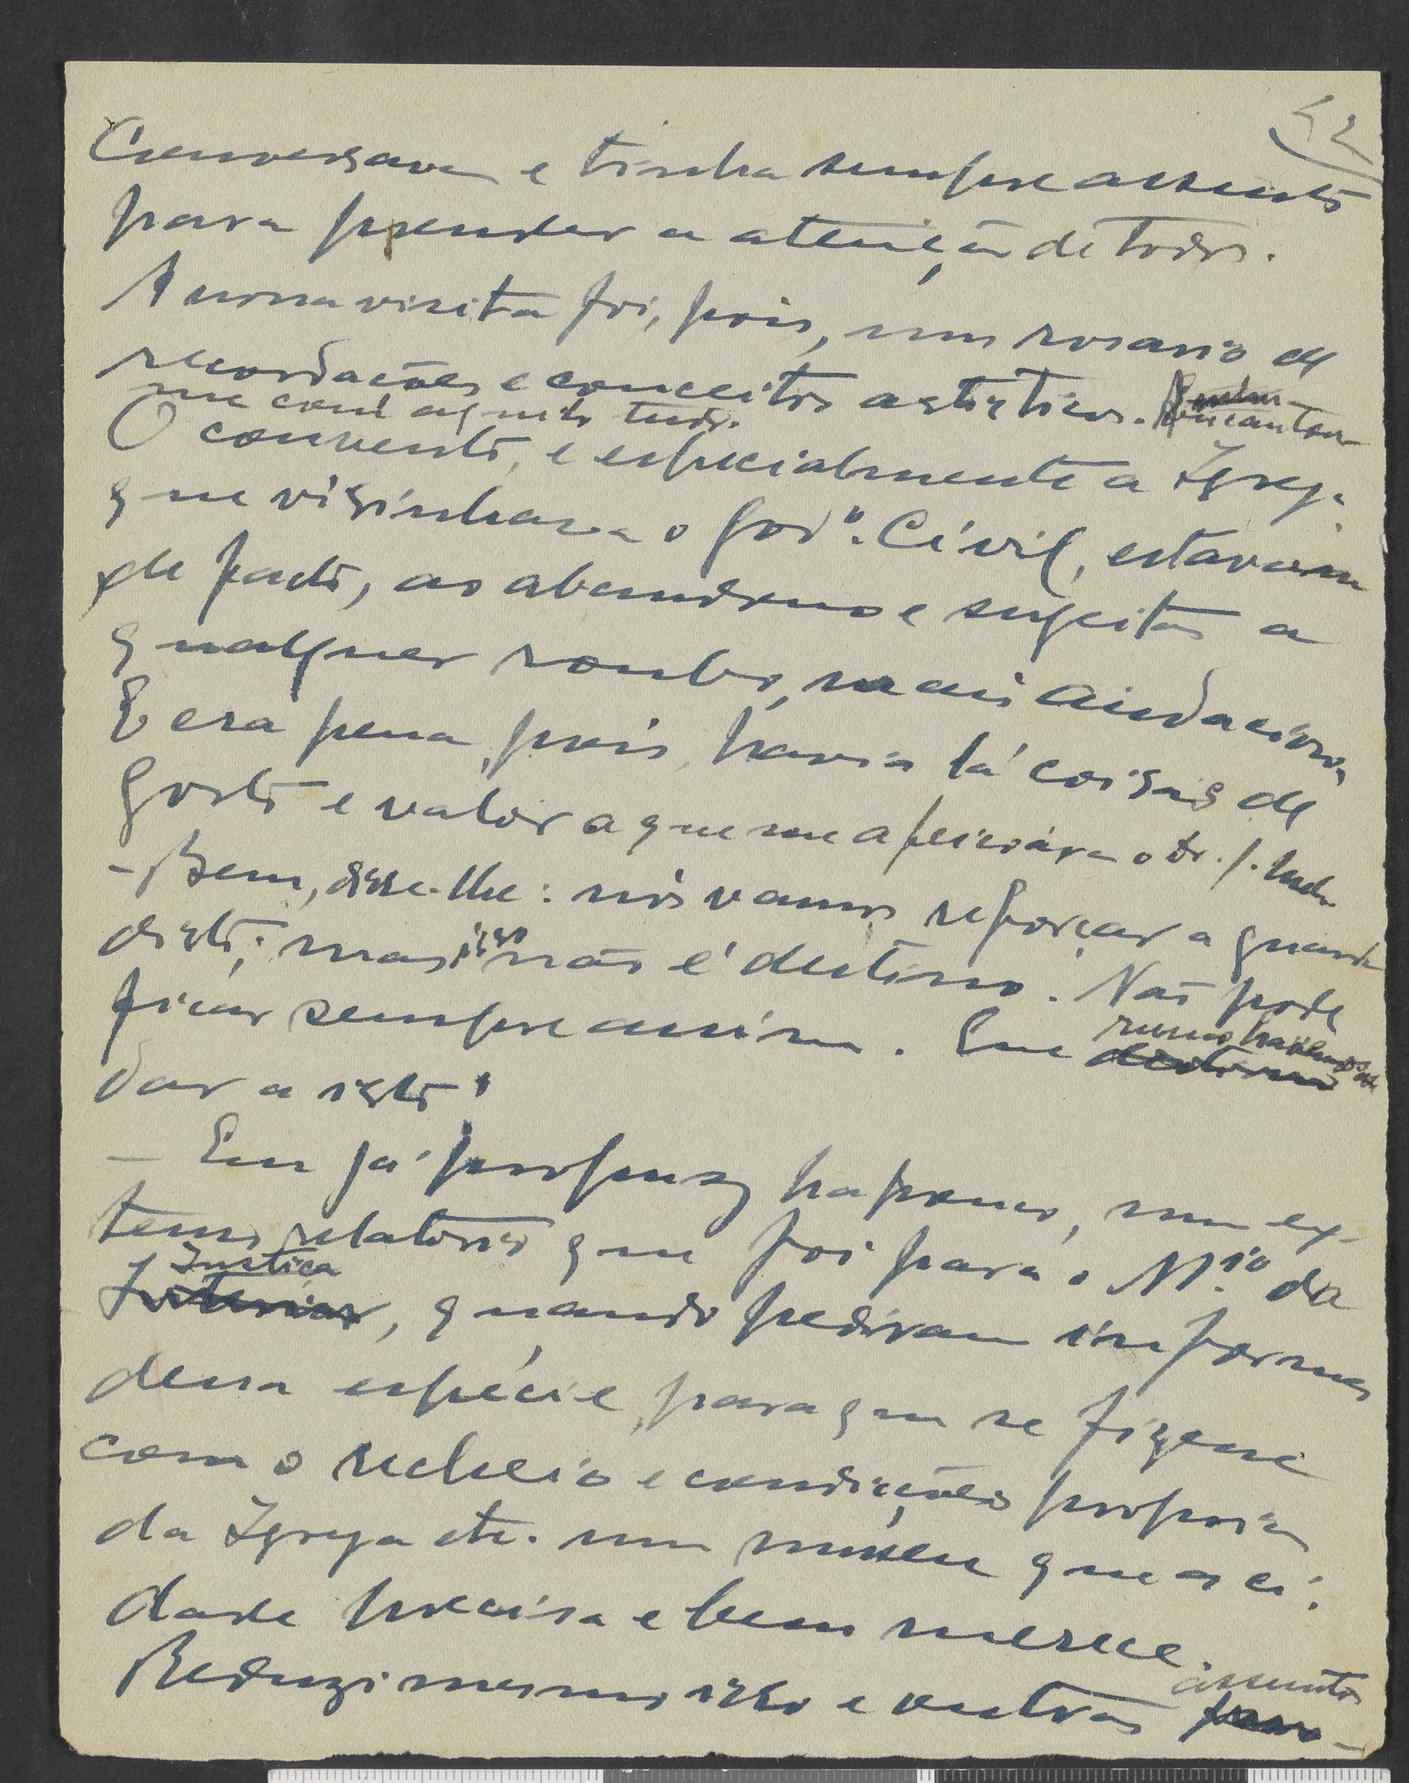 42
Conversava e tinha sempre assunto
para prender a atenção de todos.
A nossa visita foi, pois, um rosario de
recordações e conceitos artisticos. Encantou-
me com aquilo tudo.
O convento, e especialmente a Igreja
que visinhava o Govº. Civil, estavam
de facto, ao abandono e sugeitos a
qualquer roubo, mais audacioso.
E era pena, pois, havia lá coisas de
gosto e valor a que me afeiçoára o dr.
- Bem, disse-lhe: nós vamos reforçar a guarda
disto; mas isso não é destino. Não pode
ficar sempre assim. Que rumo havemos de
destino
dar a isto?
- Eu já propuz ha pouco, num ex-
tenso relatorio que foi para o Mº. da
Justiça
Interior, quando pediram informes
dessa espécie, para que se fizesse
com o recheio e condições proprias
da Igreja etc. um museu que a ci-
dade precisa e bem merece.
Reduzi mesmo isso e outros assuntos